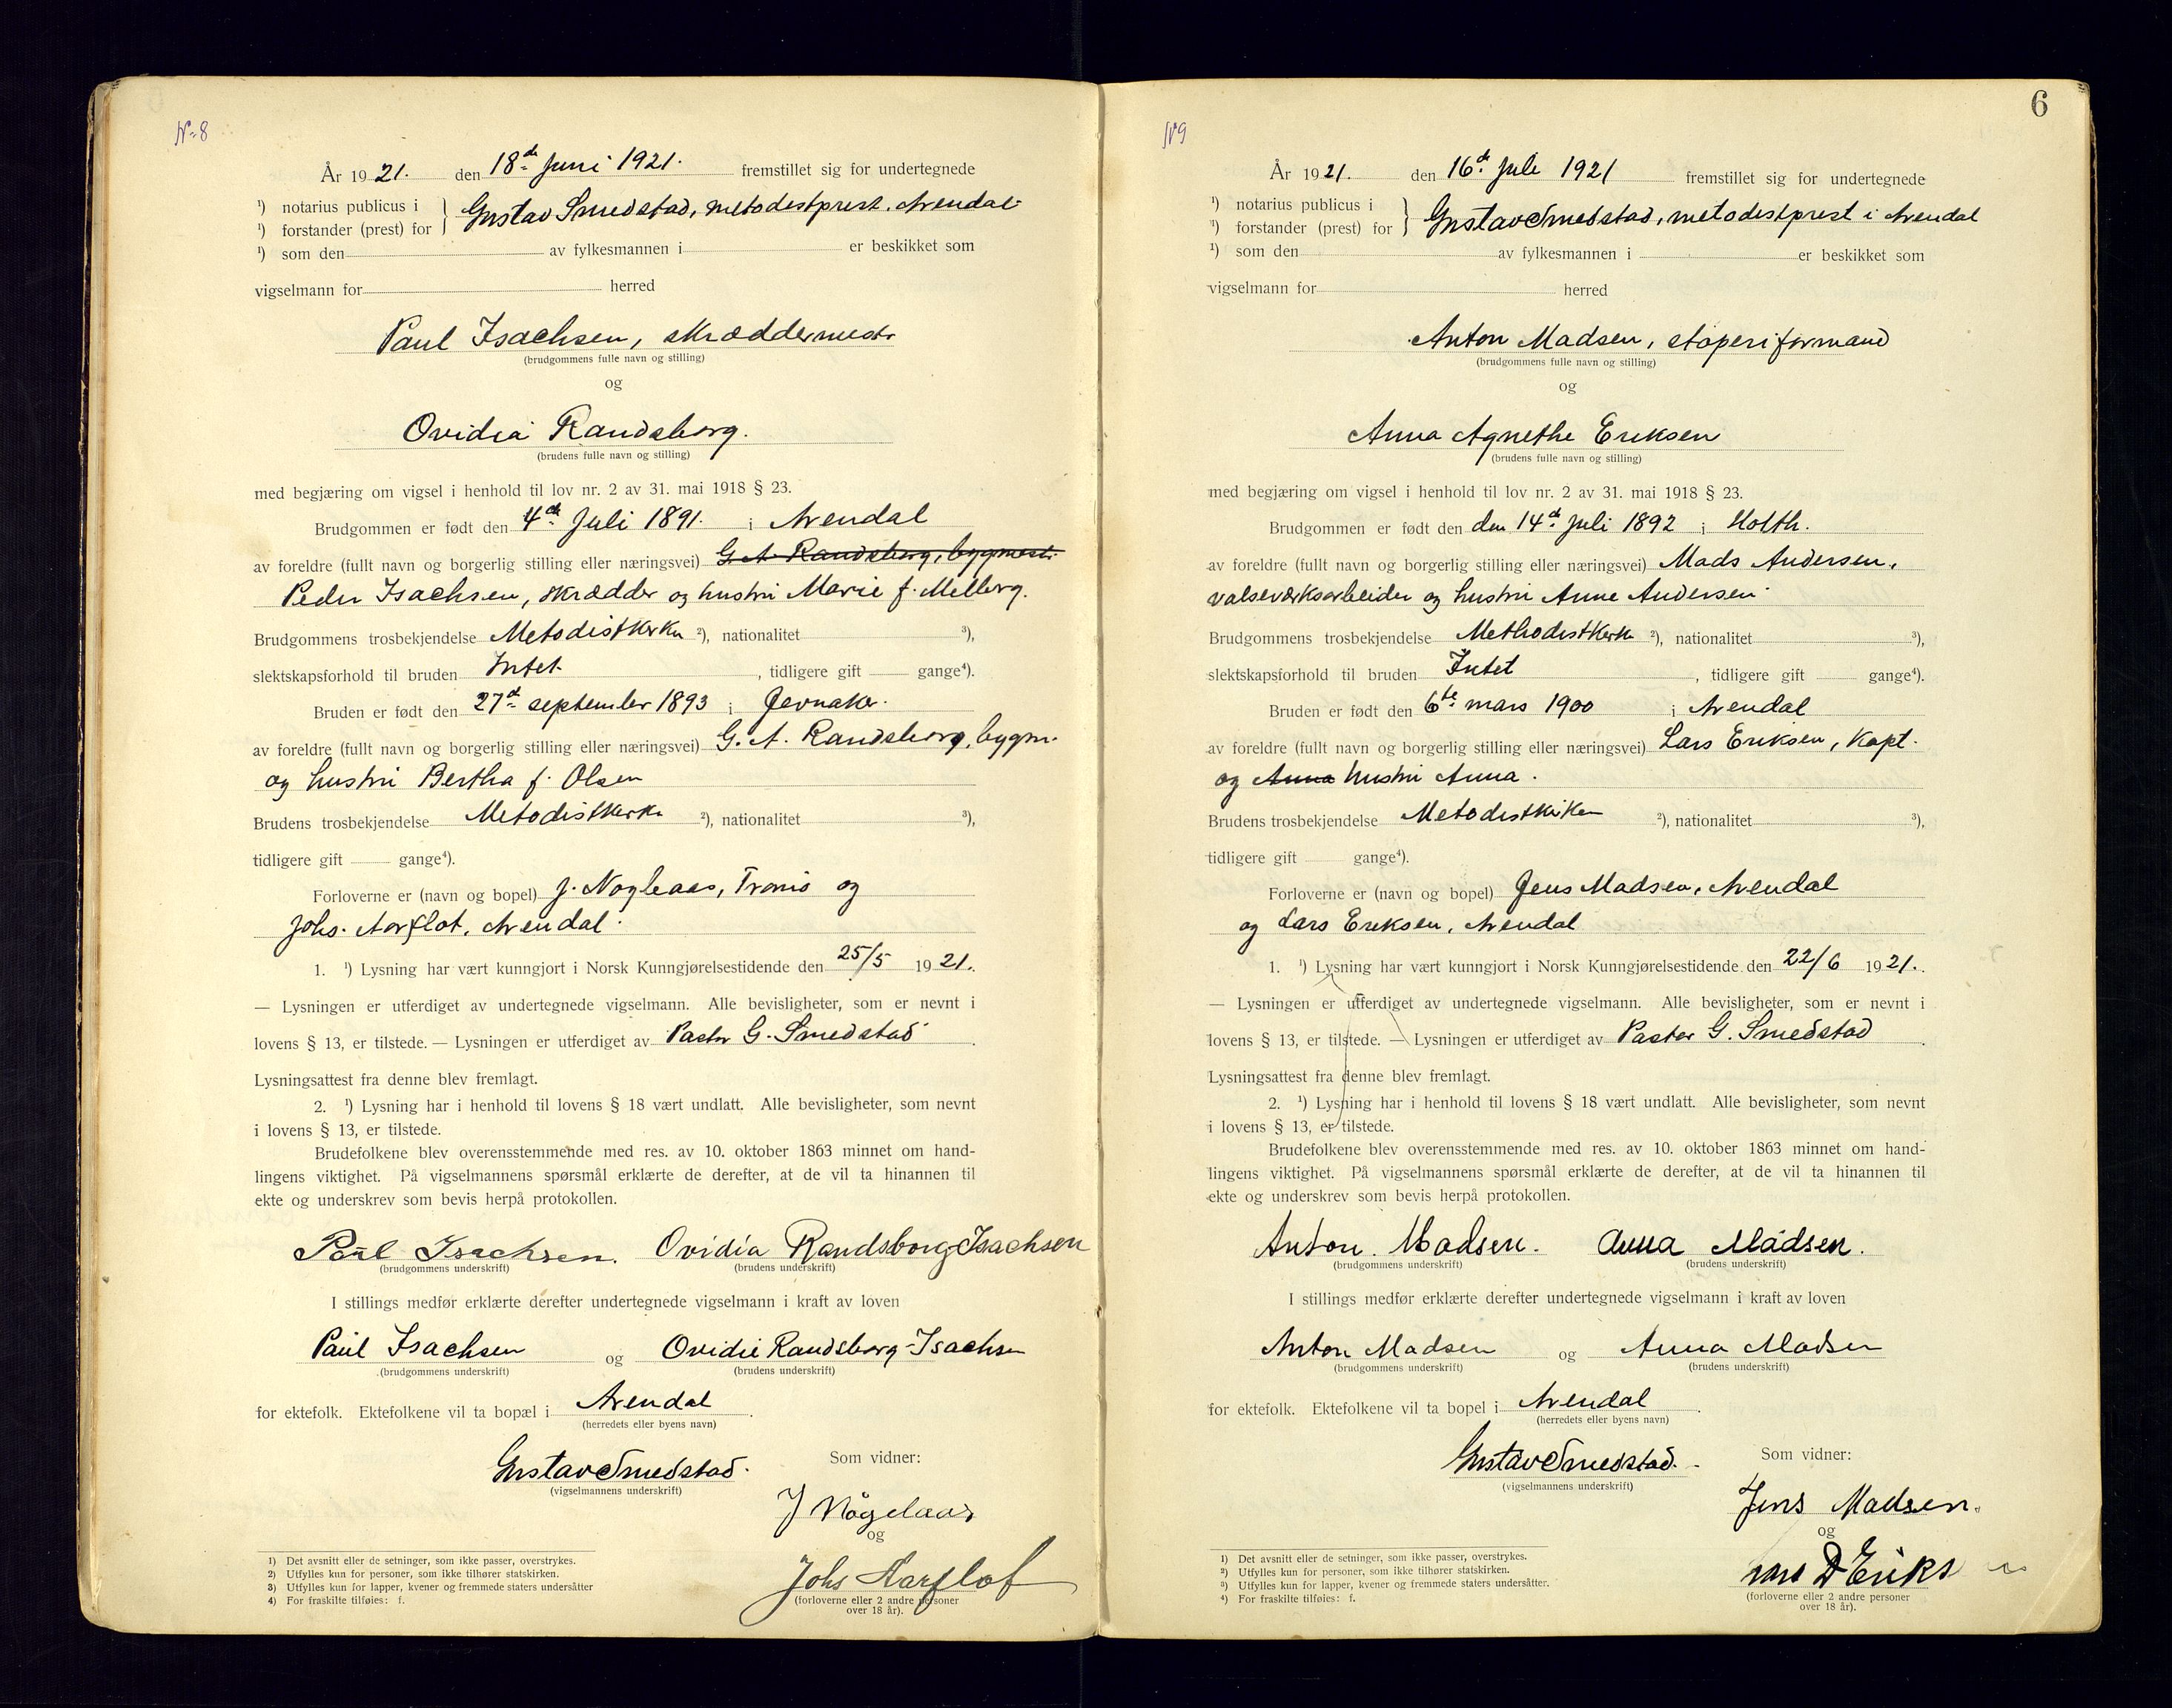 № 8
År 1921. den 18de Juni 1921. fremstillet sig for undertegnede
¹) notarius publicus i
¹) forstander (prest) for } Gustav Smedstad, metodistprest. Arendal
¹) som den av fylkesmannen i er beskikket som
vigselmann for herred
Paul Isachsen, skræddermestr
(brudgommens fulle navn og stilling)
og
Ovidia Randsborg.
(brudens fulle navn og stilling)
med begjæring om vigsel i henhold til lov nr. 2 av 31. mai 1918 § 23.
Brudgommen er født den 4de Juli 1891. i Arendal
av foreldre (fullt navn og borgerlig stilling eller næringsvei) G. A. Randsborg, bygmest.
Peder Isachsen, skrædder og hustru Marie f. Melberg.
Brudgommens trosbekjendelse Metodistkirken ²), nationalitet ³),
slektskapsforhold til bruden Intet , tidligere gift gange⁴).
Bruden er født den 27de september 1893 i Jevnaker.
av foreldre (fullt navn og borgerlig stilling eller næringsvei) G. A. Randsborg, bygm.
og hustru Bertha f. Olsen
Brudens trosbekjendelse Metodistkirken ²), nationalitet ³),
tidligere gift gange⁴).
Forloverne er (navn og bopel) J. Nøgleaas, Tromø og
Johs. Aarflot, Arendal.
1. ¹) Lysning har vært kunngjort i Norsk Kunngjørelsestidende den 25/5 1921.
— Lysningen er utferdiget av undertegnede vigselmann. Alle bevisligheter, som er nevnt i
lovens § 13, er tilstede. — Lysningen er utferdiget av Pastor G. Smedstad.
Lysningsattest fra denne blev fremlagt.
2. ¹) Lysning har i henhold til lovens § 18 vært undlatt. Alle bevisligheter, som nevnt
i lovens § 13, er tilstede.
Brudefolkene blev overensstemmende med res. av 10. oktober 1863 minnet om hand-
lingens viktighet. På vigselmannens spørsmål erklærte de derefter, at de vil ta hinannen til
ekte og underskrev som bevis herpå protokollen.
Paul Isachsen. Ovidia Randsborg-Isachsen
(brudgommens underskrift) (brudens underskrift)
I stillings medfør erklærte derefter undertegnede vigselmann i kraft av loven
Paul Isachsen og Ovidie Randsborg-Isachsen
(brudgommens underskrift) (brudens underskrift)
for ektefolk. Ektefolkene vil ta bopæl i Arendal.
(herredets eller byens navn)
Gustav Smedstad. Som vidner:
(vigselmannens underskrift)
J Nøgelaas
og
Johs Aarflot
(forloverne eller 2 andre personer
over 18 år).
1) Det avsnitt eller de setninger, som ikke passer, overstrykes.
2) Utfylles kun for personer, som ikke tilhører statskirken.
3) Utfylles kun for lapper, kvener og fremmede staters undersåtter
4) For fraskilte tilføies: f.
6
№ 9
År 1921. den 16de Juli 1921 fremstillet sig for undertegnede
¹) notarius publicus i
¹) forstander (prest) for } Gustav Smedstad, metodistprest i Arendal
¹) som den av fylkesmannen i er beskikket som
vigselmann for herred
Anton Madsen, støperiformand
(brudgommens fulle navn og stilling)
og
Anna Agnethe Eriksen
(brudens fulle navn og stilling)
med begjæring om vigsel i henhold til lov nr. 2 av 31. mai 1918 § 23.
Brudgommen er født den den 14de Juli 1892 i Holth.
av foreldre (fullt navn og borgerlig stilling eller næringsvei) Mads Andersen,
valseværksarbeider og hustru Anne Andersen
Brudgommens trosbekjendelse Methodistkirk ²), nationalitet ³),
slektskapsforhold til bruden Intet , tidligere gift gange⁴).
Bruden er født den 6te mars 1900 i Arendal
av foreldre (fullt navn og borgerlig stilling eller næringsvei) Lars Eriksen, Kapt.
og Anna hustru Anna.
Brudens trosbekjendelse Metodistkirken ²), nationalitet ³),
tidligere gift gange⁴).
Forloverne er (navn og bopel) Jens Madsen, Arendal
og Lars Eriksen, Arendal
1. ¹) Lysning har vært kunngjort i Norsk Kunngjørelsestidende den 22/6 1921.
— Lysningen er utferdiget av undertegnede vigselmann. Alle bevisligheter, som er nevnt i
lovens § 13, er tilstede. — Lysningen er utferdiget av Pastor G. Smedstad.
Lysningsattest fra denne blev fremlagt.
2. ¹) Lysning har i henhold til lovens § 18 vært undlatt. Alle bevisligheter, som nevnt
i lovens § 13, er tilstede.
Brudefolkene blev overensstemmende med res. av 10. oktober 1863 minnet om hand-
lingens viktighet. På vigselmannens spørsmål erklærte de derefter, at de vil ta hinannen til
ekte og underskrev som bevis herpå protokollen.
Anton. Madsen. Anna Madsen.
(brudgommens underskrift) (brudens underskrift)
I stillings medfør erklærte derefter undertegnede vigselmann i kraft av loven
Anton Madsen og Anna Madsen
(brudgommens underskrift) (brudens underskrift)
for ektefolk. Ektefolkene vil ta bopel i Arendal.
(herredets eller byens navn)
Gustav Smedstad. Som vidner:
(vigselmannens underskrift)
Jens Madsen.
og
Lars D Eriksen
(forloverne eller 2 andre personer
over 18 år).
1) Det avsnitt eller de setninger, som ikke passer, overstrykes.
2) Utfylles kun for personer, som ikke tilhører statskirken.
3) Utfylles kun for lapper, kvener og fremmede staters undersåtter.
4) For fraskilte tilføies: f.